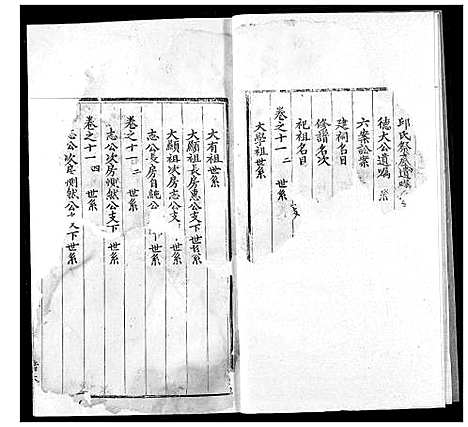 邱氏祭產遺囑
德大公遺囑
六案訟案
建祠名目
修譜名次
祀祖名目
卷之十一 二 世系
大學祖世系
大有祖世系
大顯祖長房惠公支下世系
大顯祖次房志公支下 世系
志公長房自純公 下 世系
卷之十一 三 世系
志公次房惻然公支下 世系
卷之十一 四 世系
志公次房惻然公 支下世系